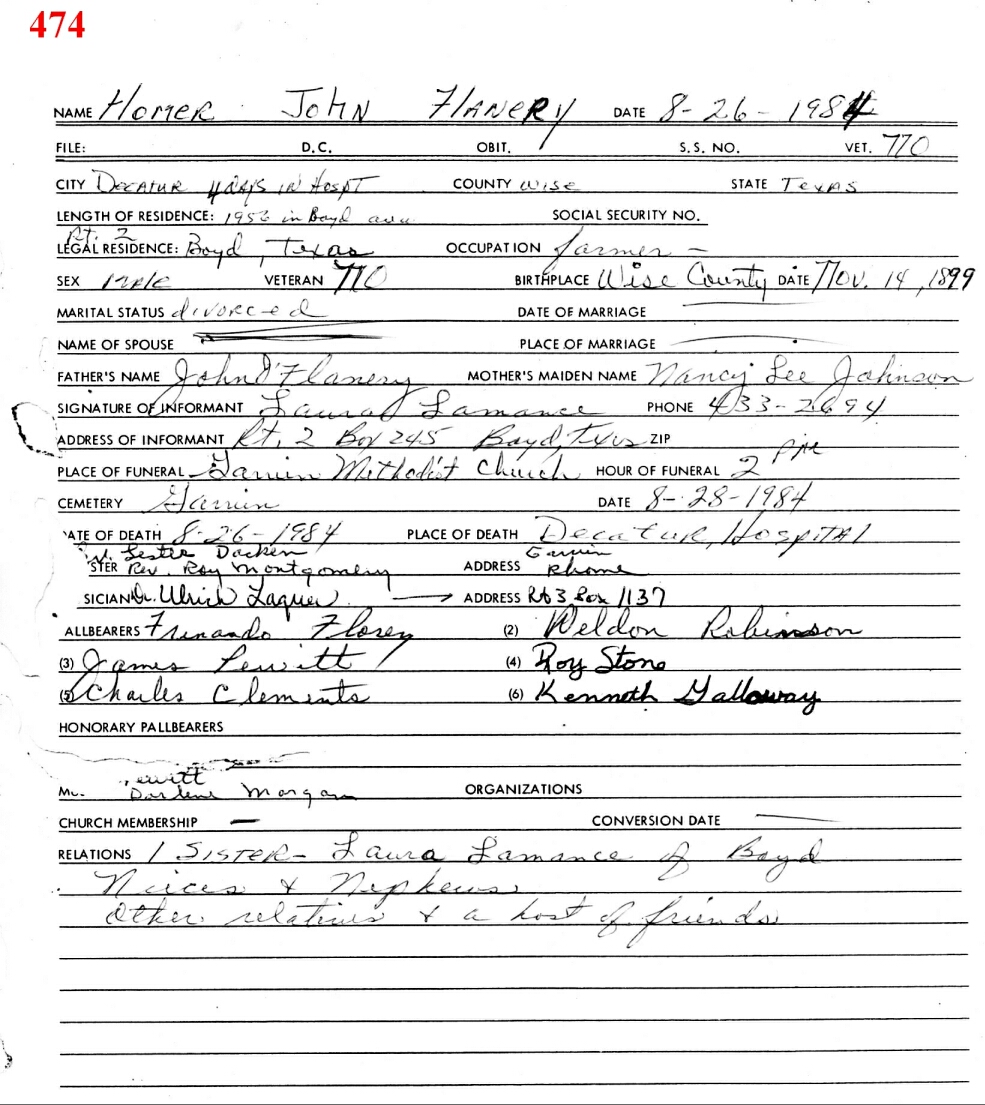 474
NAME Homer John Flanery DATE 8-26-1984
FILE: D.C. OBIT. S.S. NO. VET. no
CITY Decatur 4 days in Hospt COUNTY Wise STATE Texas
LENGTH OF RESIDENCE: in Boyd area SOCIAL SECURITY NO.
Rt. 2
LEGAL RESIDENCE: Boyd, Texas OCCUPATION farmer -
SEX Male VETERAN no BIRTHPLACE Wise County DATE Nov. 14, 1899
MARITAL STATUS divorced DATE OF MARRIAGE
NAME OF SPOUSE PLACE OF MARRIAGE
FATHER'S NAME John Flanery MOTHER'S MAIDEN NAME Nancy Lee Johnson
SIGNATURE OF INFORMANT Laura Lamance PHONE 433-2694
ADDRESS OF INFORMANT Rt. 2 Box 245 Boyd, Texas ZIP
PLACE OF FUNERAL Garvin Methodist Church HOUR OF FUNERAL 2 PM
CEMETERY Garvin DATE 8-28-1984
ATE OF DEATH 8-26-1984 PLACE OF DEATH Decatur, Hospital
Lester Garvin
STER Rev. Roy Montgomery ADDRESS Rhome
SICIAN Dr. Ulrich ADDRESS Rt 3 Box 1137
ALLBEARERS Florey (2) Weldon Robinson
(3) James Pewitt (4) Roy Stone
(5) Charles Clements (6) Kenneth Galloway
HONORARY PALLBEARERS
ewitt
Mu. Darlene Morgan ORGANIZATIONS
CHURCH MEMBERSHIP - CONVERSION DATE
RELATIONS 1 Sister - Laura Lamance of Boyd
Nieces & Nephews
Other relatives & a host of friends